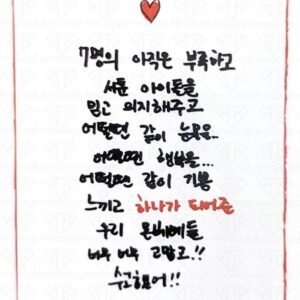 7명의 아직은 부족하고
서툰 아이들을
믿고 의지해주고
어떨땐 같이 눈물을..
어떨땐 행복을...
어떨땐 같이 기쁨
느끼고 하나가 되어준
우리 몬베베들
너무 너무 고맙고..!!
수고했어!!